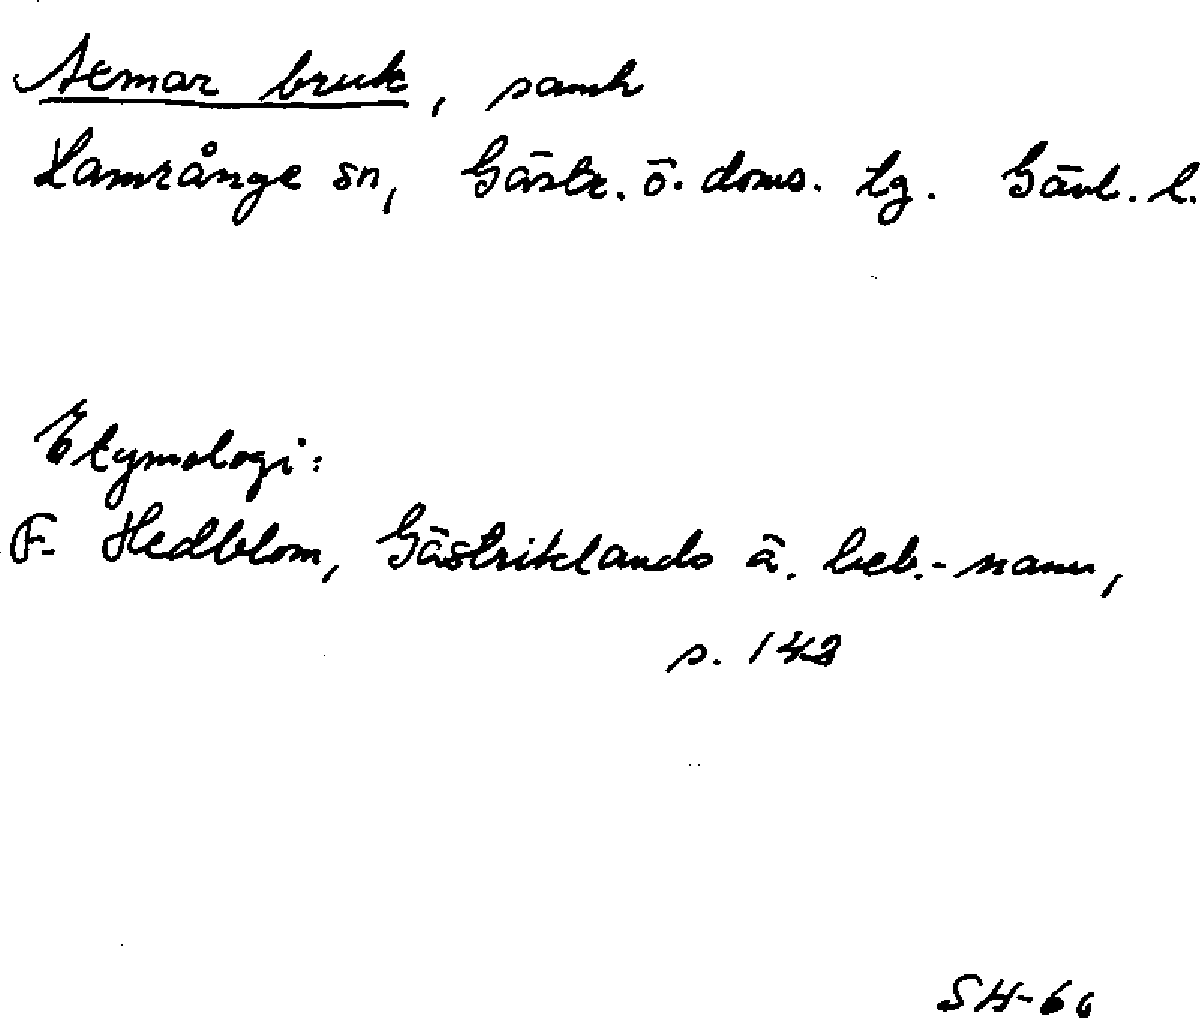 Axmar bruk, samh
Hamrånge sn, Gästr. ö. doms. tg. Gävl. l.
Etymologi:
F. Hedblom, Gästriklands ä. beb.-namn,
s. 142
SH-66